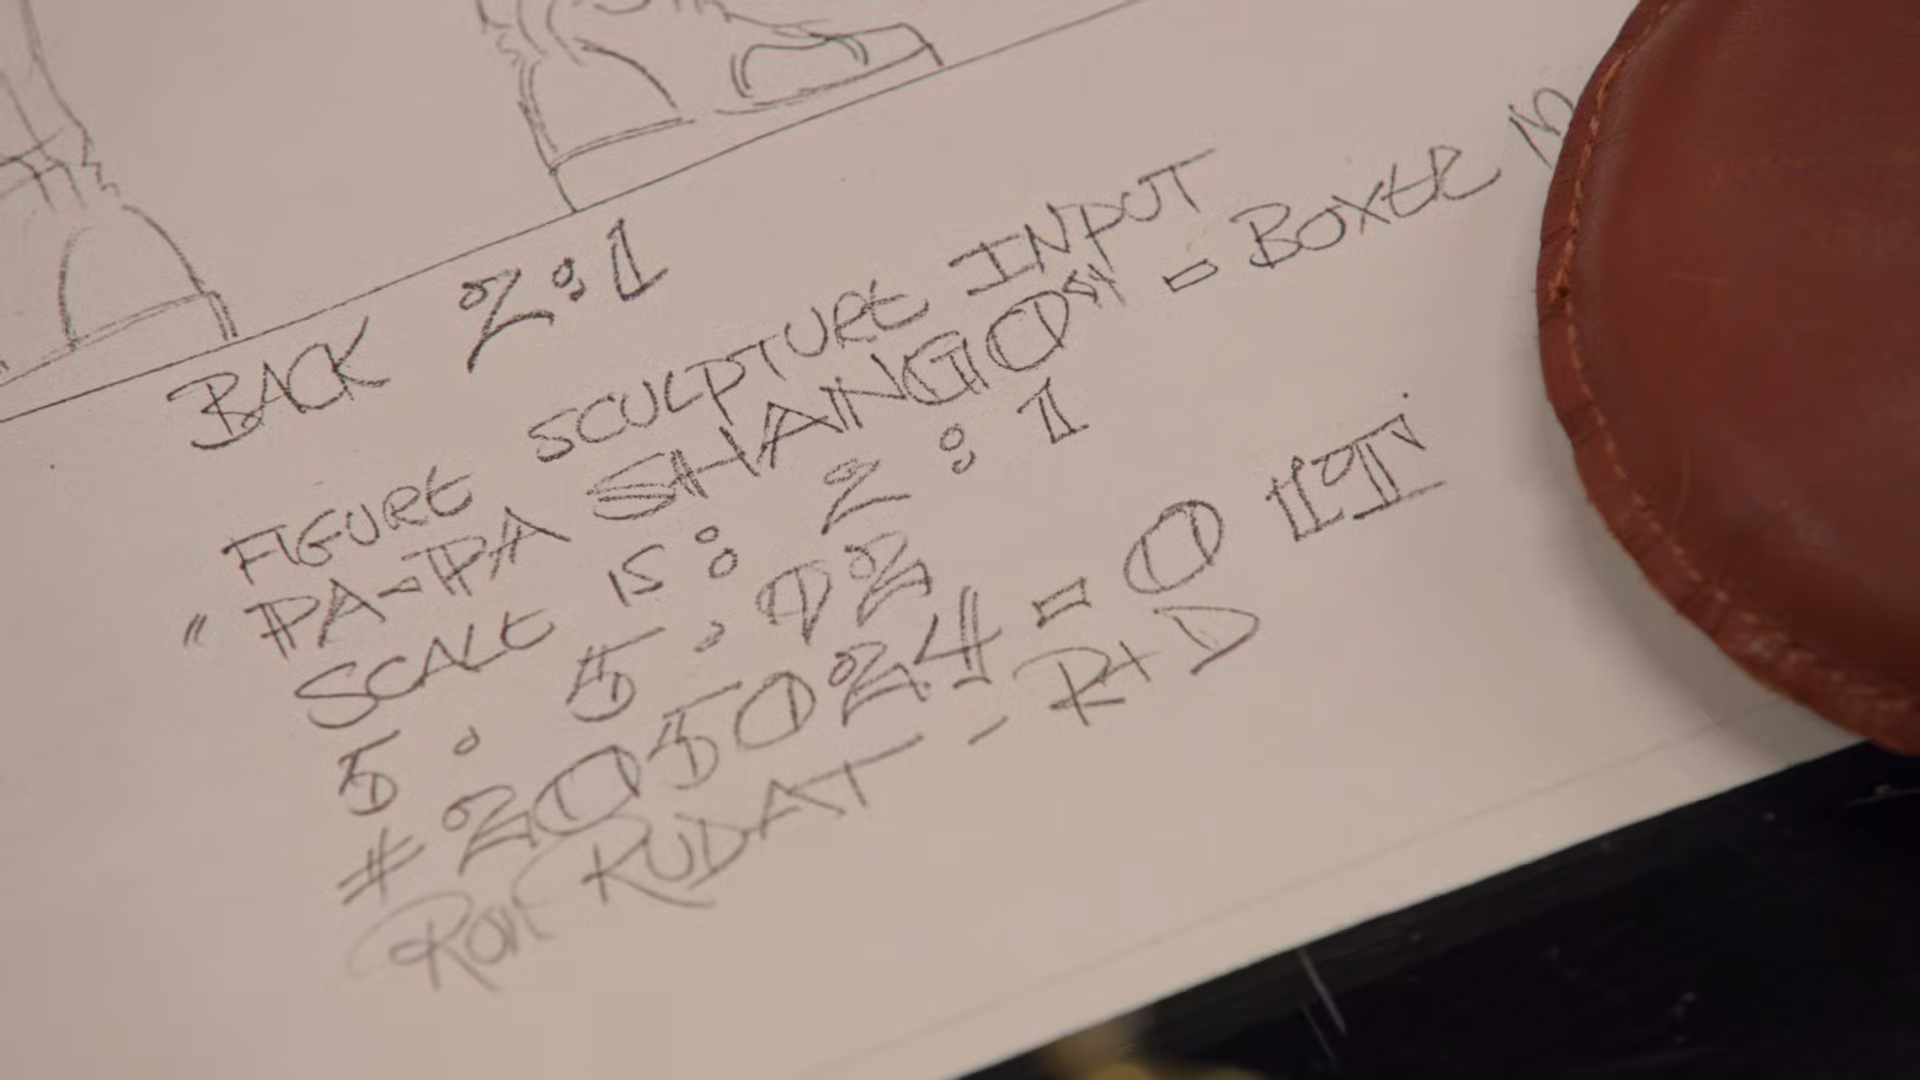 BACK 2:1
FIGURE SCULPTURE INPUT
"PA-PA SHANGO" = BOXER
SCALE IS: 2 : 1
5 . 5 . 92
# 205024 = 0
RON RUDAT - R+D